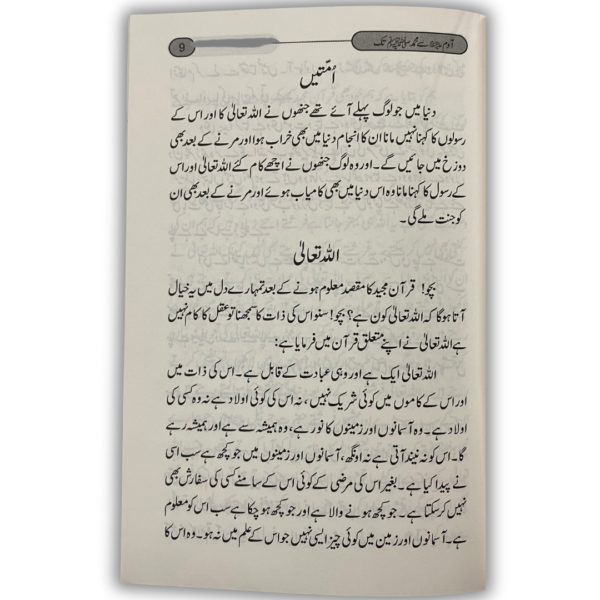 آدم علیہ السلام سے محمد ﷺ تک
9
اُمتیں
دنیا میں جو لوگ پہلے آئے تھے جنھوں نے اللہ تعالیٰ کا اور اس کے
رسولوں کا کہنا نہیں مانا ان کا انجام دنیا میں بھی خراب ہوا اور مرنے کے بعد بھی
دوزخ میں جائیں گے۔ اور وہ لوگ جنھوں نے اچھے کام کئے اللہ تعالیٰ اور اس
کے رسول کا کہنا مانا وہ اس دنیا میں بھی کامیاب ہوئے اور مرنے کے بعد بھی ان
کو جنت ملے گی۔
اللہ تعالیٰ
بچو! قرآن مجید کا مقصد معلوم ہونے کے بعد تمہارے دل میں یہ خیال
آتا ہوگا کہ اللہ تعالیٰ کون ہے؟ بچو! سنو اس کی ذات کا سمجھنا تو عقل کا کام نہیں
ہے اللہ تعالیٰ نے اپنے متعلق قرآن میں فرمایا ہے:
اللہ تعالیٰ ایک ہے اور وہی عبادت کے قابل ہے۔ اس کی ذات میں
اور اس کے کاموں میں کوئی شریک نہیں، نہ اس کی کوئی اولاد ہے نہ وہ کسی کی
اولاد ہے۔ وہ آسمانوں اور زمینوں کا نور ہے، وہ ہمیشہ سے ہے اور ہمیشہ رہے
گا۔ اس کو نہ نیند آتی ہے نہ اونگھ، آسمانوں اور زمینوں میں جو کچھ ہے سب اسی
نے پیدا کیا ہے۔ بغیر اس کی مرضی کے کوئی اس کے سامنے کسی کی سفارش بھی
نہیں کر سکتا ہے۔ جو کچھ ہونے والا ہے اور جو کچھ ہو چکا ہے سب اس کو معلوم
ہے۔ آسمانوں اور زمین میں کوئی چیز ایسی نہیں جو اس کے علم میں نہ ہو۔ وہ اس کا